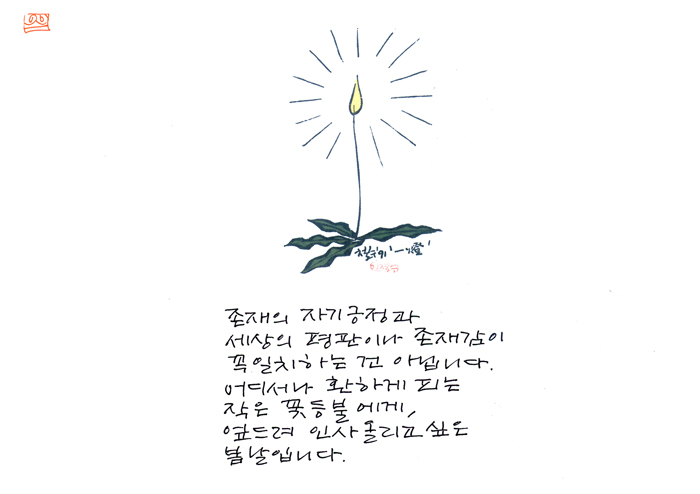 존재의 자기긍정과
세상의 평판이나 존재감이
꼭 일치하는 건 아닙니다.
어디서나 환하게 피는
작은 꽃등불에게,
엎드려 인사올리고 싶은
봄날입니다.